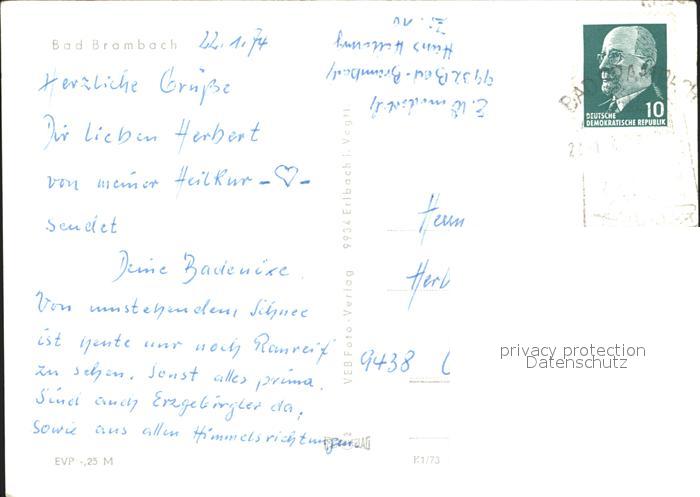 Bad Brambach 22.1.74
Herzliche Grüße
Dir lieben Herbert
von meiner Heilkur
sendet
Deine Badenixe.
Von umstehendem Schnee
ist heute nur noch Raureif
zu sehen. Sonst alles prima.
Sind auch Erzgebirgler da,
sowie aus allen Himmelsrichtungen.
EVP -,25 M
VEB Foto-Verlag 9934 Erlbach i. Vogtl
9932 Bad-Brambach
Haus
Zi. 10
DEUTSCHE 10
DEMOKRATISCHE REPUBLIK
BAD BRAMBACH
Herrn
Herb
9438
K1/73
privacy protection
Datenschutz